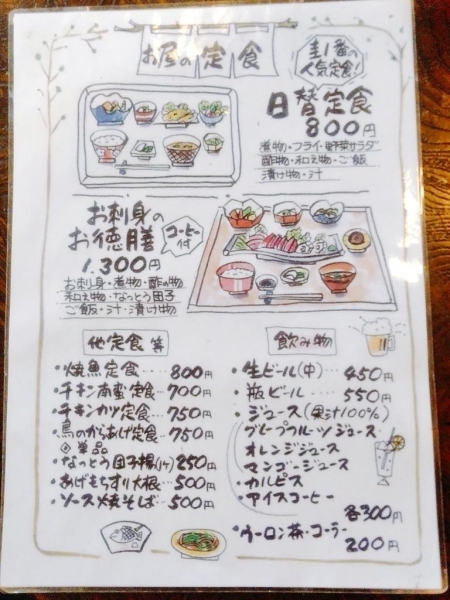 お昼の定食
圭1番の
人気定食!
日替定食
800円
煮物・フライ・野菜サラダ
酢物・和え物・ご飯
漬け物・汁
お刺身の
お徳膳
コーヒー付
1,300円
お刺身・煮物・酢の物
和え物・なっとう団子
ご飯・汁・漬け物
他定食 等
・焼魚定食…800円
・チキン南蛮定食…700円
・チキンカツ定食…750円
・鳥のからあげ定食…750円
◎単品
・なっとう団子揚(1ケ)250円
・あげもちすり大根…500円
・ソース焼そば…500円
飲み物
・生ビール(中)…450円
・瓶ビール…550円
・ジュース(果汁100%)
グレープフルーツジュース
オレンジジュース
マンゴージュース
・カルピス
・アイスコーヒー
各300円
・ウーロン茶・コーラー
200円